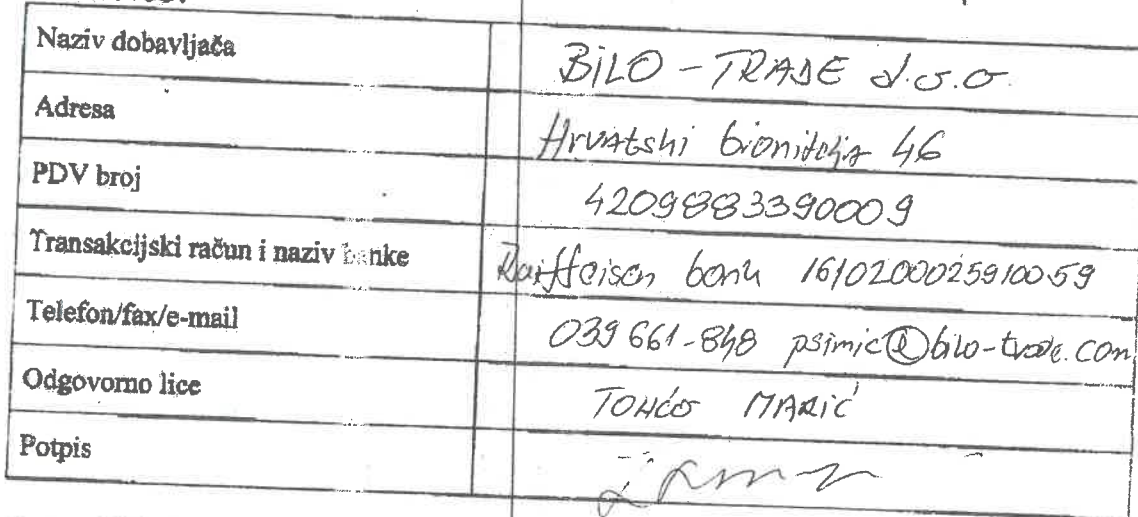 Naziv dobavljača BILO - TRADE d.o.o.
Adresa Hrvatskih branitelja 46
PDV broj 4209883390009
Transakcijski račun i naziv banke Raiffeisen bank 1610200025910059
Telefon/fax/e-mail 039 661-848 psimic@bilo-trade.com
Odgovorno lice MARIĆ
Potpis